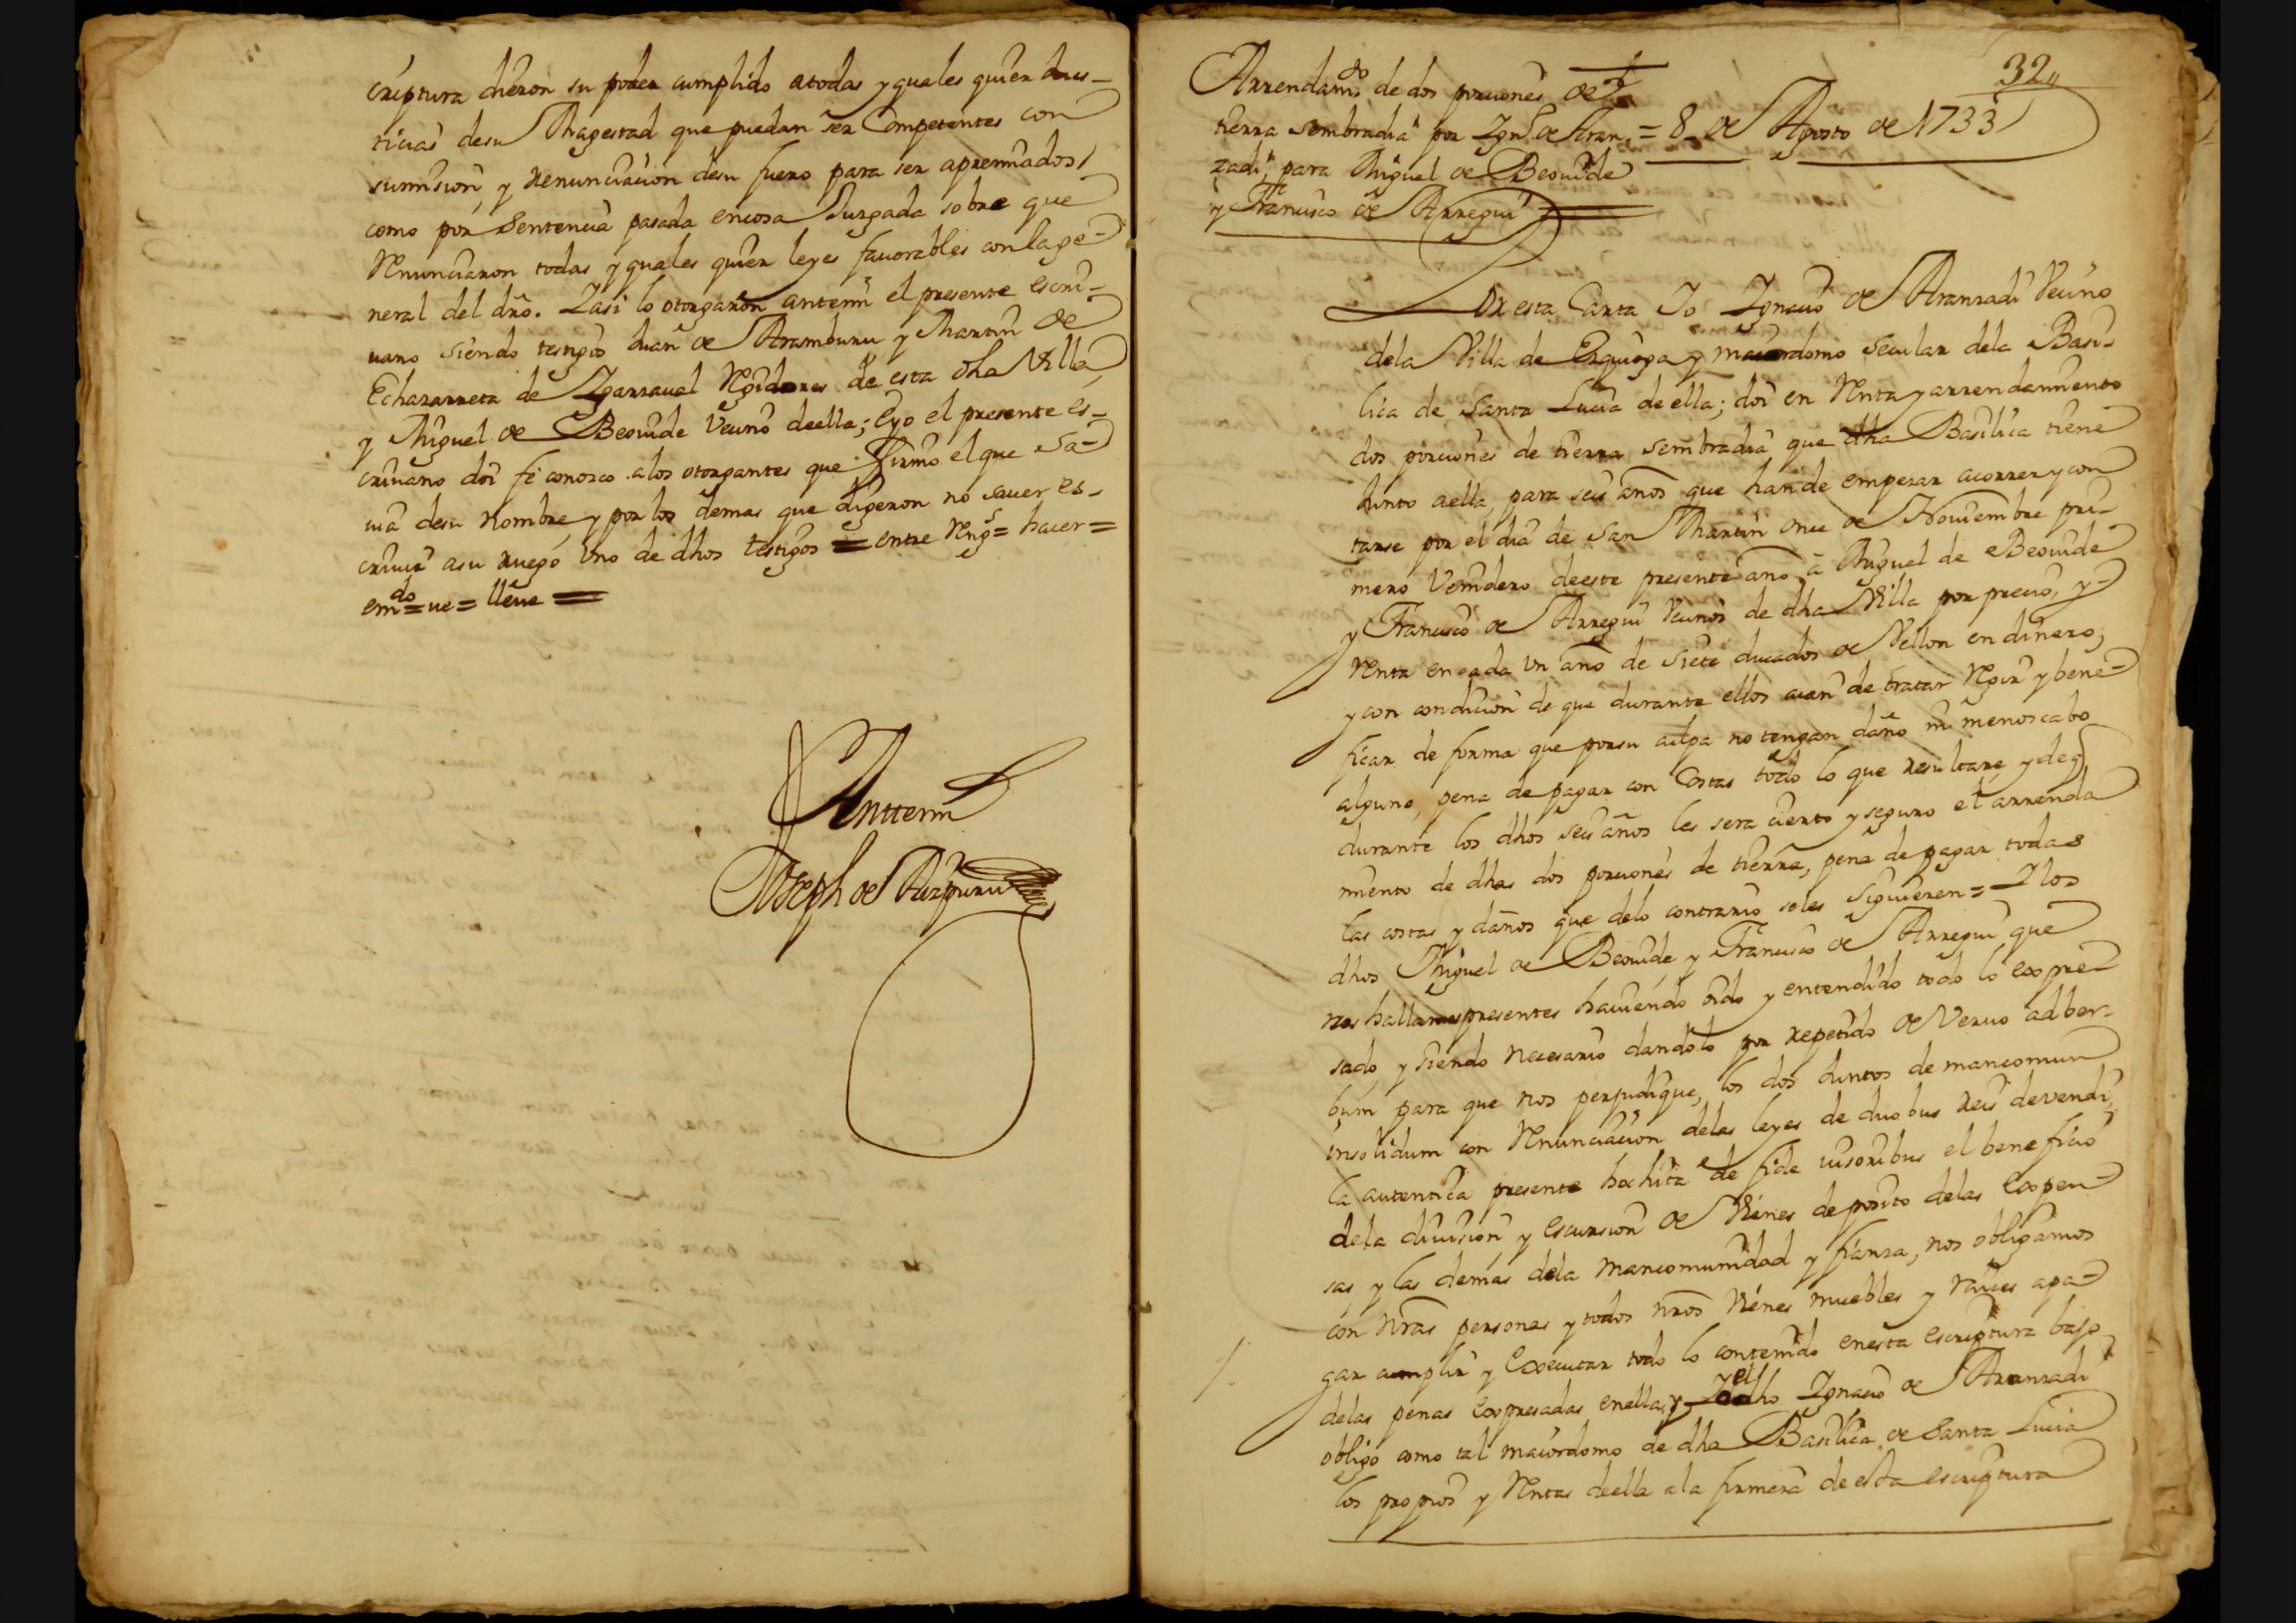 criptura dieron su poder cumplido atodas y quales quier Jus-
ticias desu Magestad que puedan ser Competentes con
sumision, y renunciacion desu fuero para ser apremiados
como por Sentencia pasada encosa Juzgada sobre que
Renunciaron todas y quales quier leyes fauorables con la ge-
neral del dro. Iasi lo otorgaron antemi el presente escri-
uano siendo testigos Juan de Aramburu y Martin de
Echazarreta de Igarzaual Regidores de esta dha Villa,
y Miguel de Beouide Vecino deella; Eyo el presente es-
criuano doi fe conozco alos otorgantes que firmo el que sa-
uia desu nombre, y por los demas que digeron no sauer es-
criuir asu ruego Vno de dhos testigos = entre Rengs = hacer =
emdo = ue = lleue =
Anttemi
Joseph de Aizpuru
32
Arrendamto de dos porciones de
tierra sembradia por Igno de Aran- = 8 de Agosto de 1733
zadi, para Miguel de Beouide
y Franco de Arregui
Por esta Carta Io Ignacio de Aranzadi Vecino
dela Villa de Ezquioga y maiordomo secular dela Basi-
lica de Santa Lucia de ella; doi en Renta y arrendamiento
dos porciones de tierra sembradia que dha Basilica tiene
Junto aella, para seis años que hande empezar acorrer y con
tarse por el dia de San Martin once de Nouiembre pri-
mero Venidero deeste presente año, a Miguel de Beouide
y Francisco de Arregui Vecinos de dha Villa por precio, y
Renta encada vn año de siete ducados de Vellon en dinero;
y con condicion de que durante ellos aian de tratar Regir y bene-
ficiar de forma que porsu culpa no tengan daño ni menoscabo
alguno, pena de pagar con Costas todo lo que resultare, y de q
durante los dhos seis años les sera cierto y seguro el arrenda
miento de dhas dos porciones de tierra, pena de pagar todas
las costas y daños que delo contrario seles siguieren = I los
dhos Miguel de Beouide y Francisco de Arregui que
nos hallamos presentes hauiendo oido y entendido todo lo expre-
sado, y siendo necesario dandolo por repetido de Veruo adber-
bum para que nos perjudique, los dos Juntos de mancomun
insolidum con Renunciacion delas leyes de duobus reis devendi,
la autentica presente hochita de fide iusoribus el beneficio
dela diuision y escursion de Vienes deposito delas Expen-
sas y las demas dela mancomunidad y fianza, nos obligamos
con nras personas y todos nros Vienes muebles y raices apa-
gar cumplir y Executar todo lo contenido enesta escriptura bajo
delas penas Expresadas enella, y Io el dho Ignacio de Aranzadi
obligo como tal maiordomo de dha Basilica de Santa Lucia
los propios y Rentas deella ala firmeza de esta escriptura